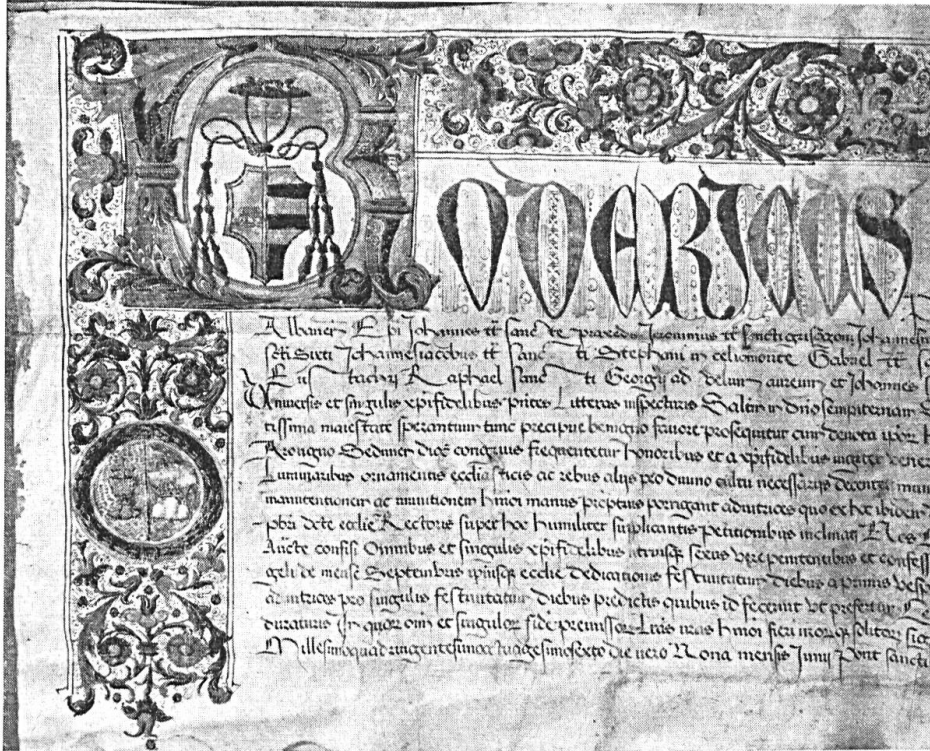 RODERICUS
Albaneñ Epi Johannes tt sanc te praxedis Jeronimus tt sancti grisogoni Johannes
scti Sixti Johannes iacobus tt sanc ti Stephani in celiomonte Gabriel tt
Eus tachij Raphael sanc ti Georgij ad velum aureum et Johannes
Vniversis et singulis xpifidelibus pntes Litteras inspecturis Saltem in dno sempiternam
tissima maiestate sperantium tunc precipue benigno favore prosequitur cum devota ipor
Arongno dioc congruis frequentetur honoribus et a xpifidelibus iugiter
Luminaribus ornamentis ecclia sticis ac rebus alijs pro divino cultu necessarijs decenter
manutentionem ac munitionem hmoi manus promptius porrigant adiutrices quo ex hoc ibidem
pbri dicte ecclie Rectoris super hoc humiliter supplicantis petitionibus inclinati Nos
Aucte confisi Omnibus et singulis xpifidelibus utriusq sexus vere penitentibus et
geli de mense Septembris ipsiusq ecclie Dedicationis festivitatum diebus a primis
adiutrices pro singulis festivitatum diebus predictis quibus id fecerint ut prefertur
duraturis In quor omi et singulor fidem premissor Lras nras hmoi fieri
Millesimoquadringentesimooctuagesimosexto die vero Nona mensis Iunij Pont sancti